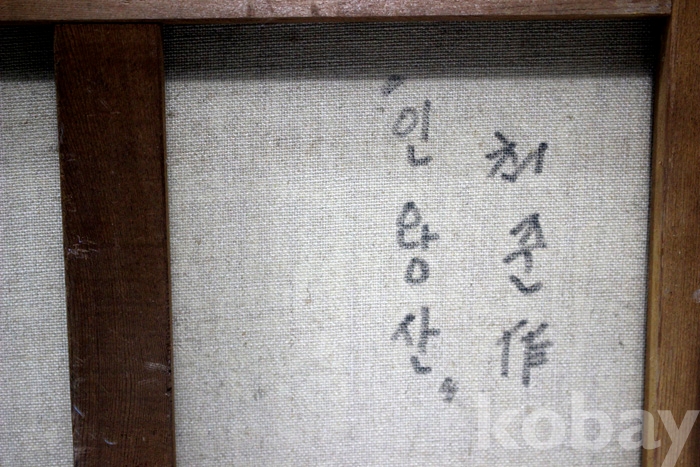 최준作
"인왕산"
kobay